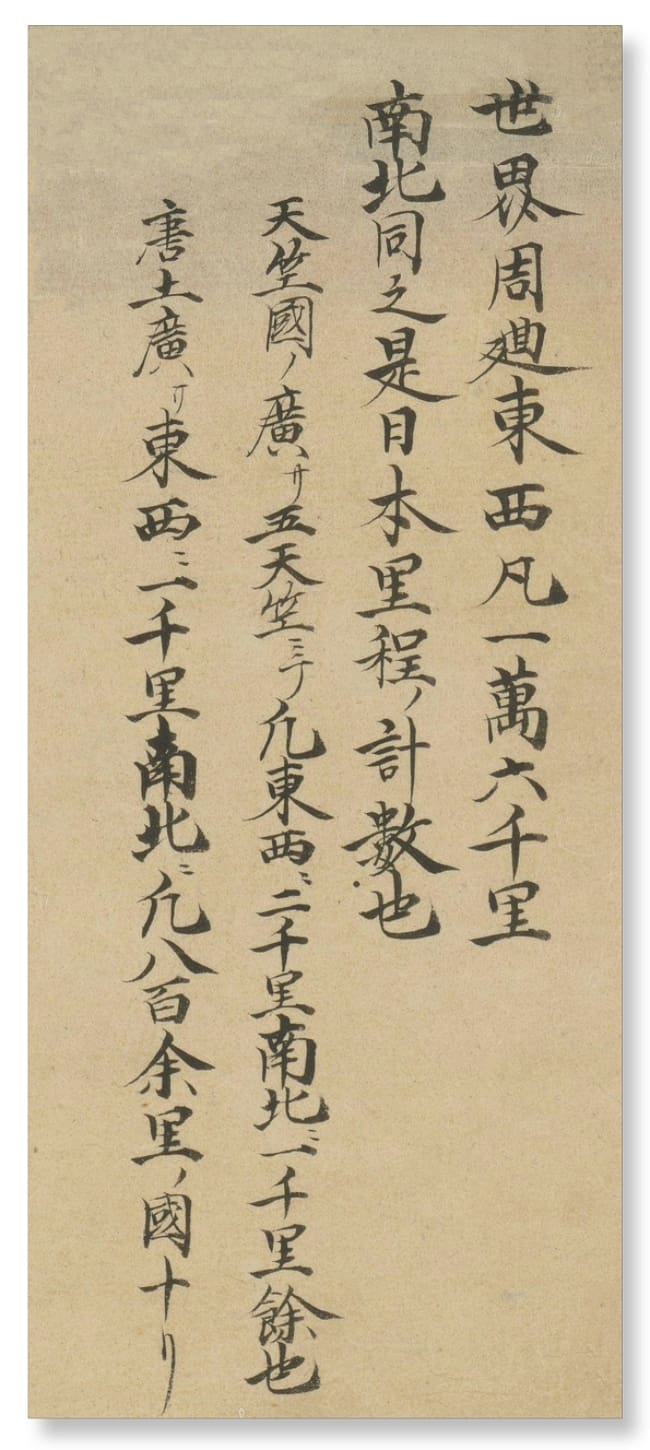 世界周廻東西凡一萬六千里
南北同之是日本里程ノ計數也
天竺國ノ廣サ五天竺ニテ凡東西ニ二千里南北ニ一千里餘也
唐土廣サ東西ニ一千里南北ニ凡八百余里ノ國ナリ